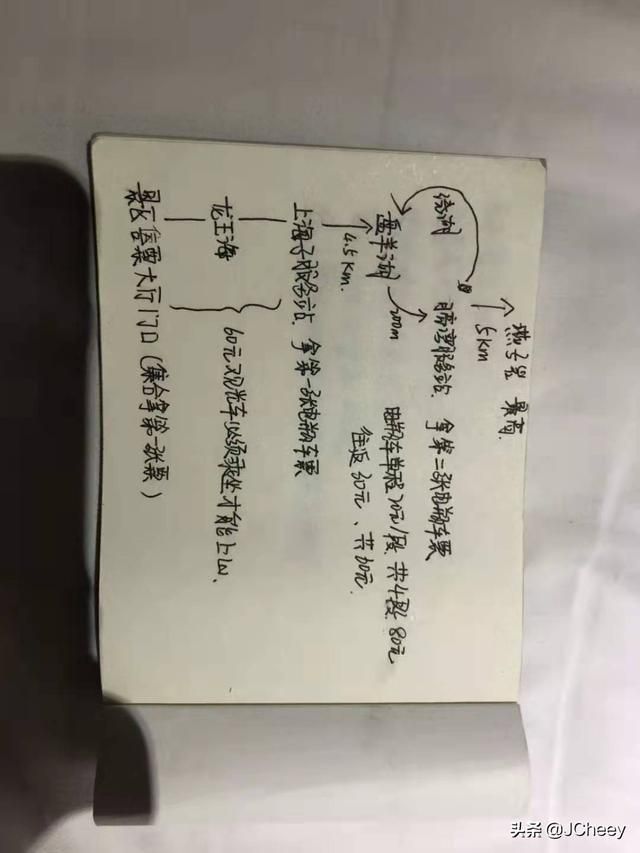 燕子垭 最高
5km
绕湖
月亮湾服务站. 拿第二张电瓶车票
200m
盘羊湖
电瓶车单程20元/段 共4段. 80元
往返30元、共60元.
4.5km.
上海子服务站. 拿第一张电瓶车票
龙王海
60元观光车必须乘坐才能上山、
景区售票大厅门口 (集合拿第一张票)
头条 @JCheey